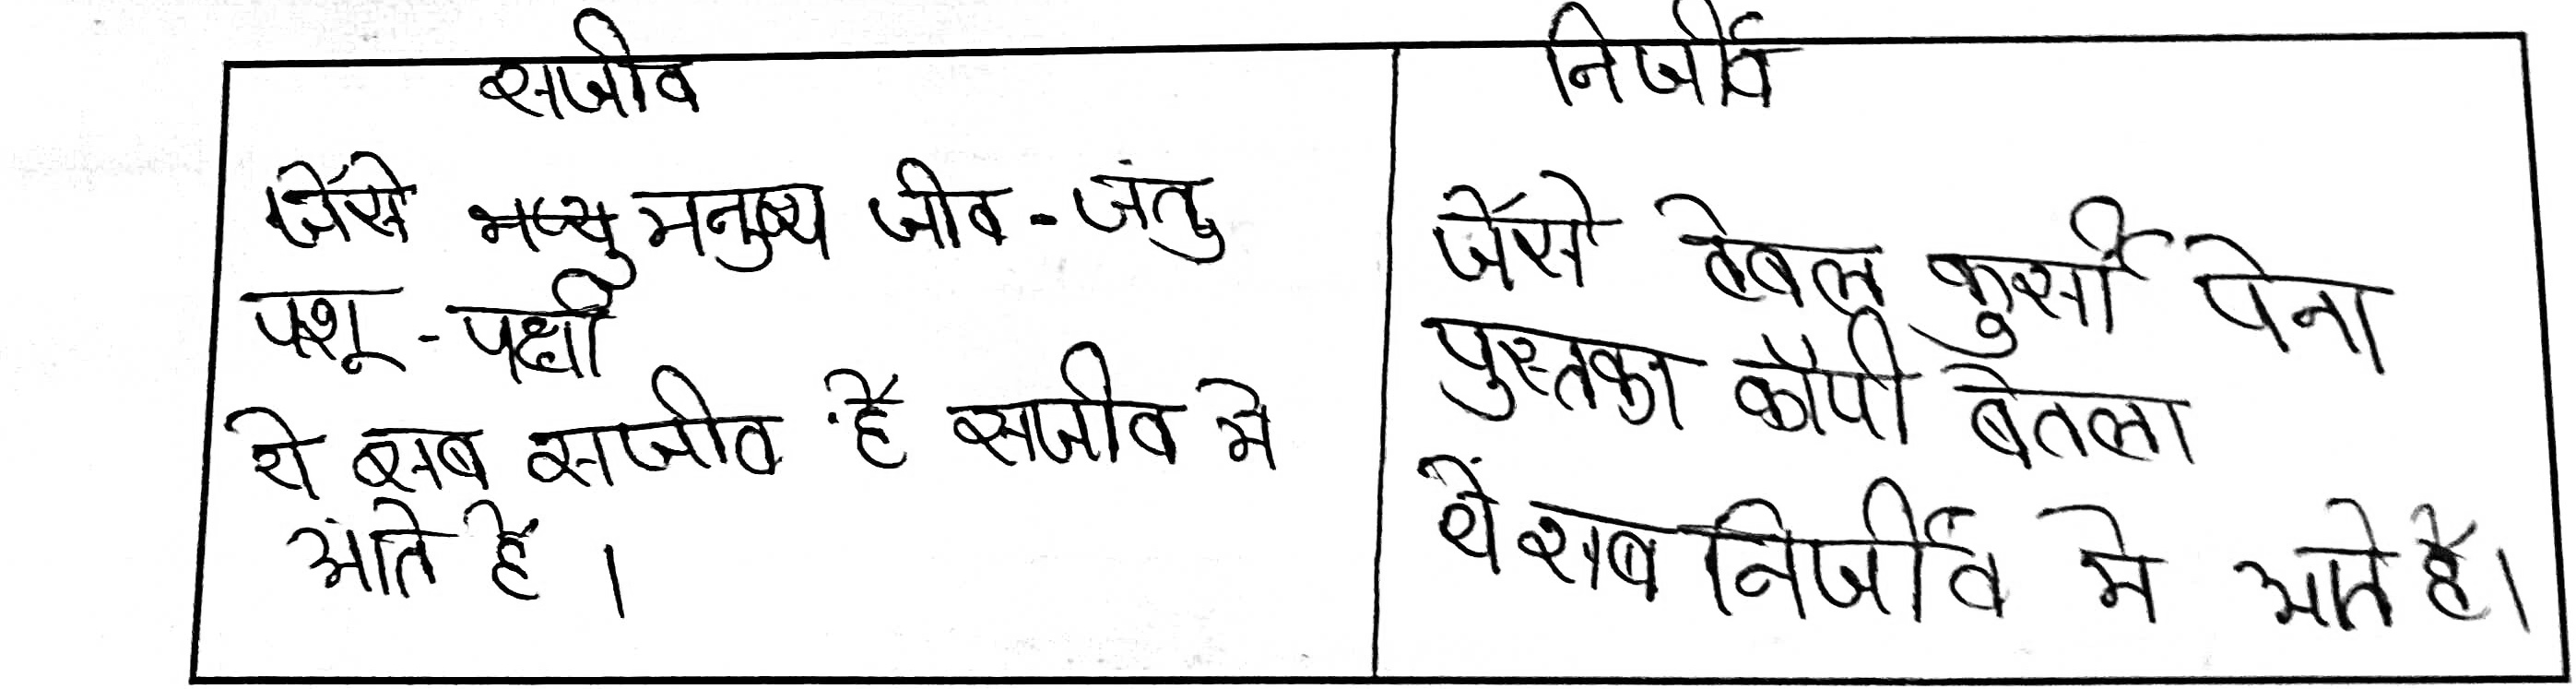 सजीव
जैसे मनुष्य जीव-जंतु
पशू-पक्षी
ये सब सजीव है सजीव मे
आते है ।
निर्जीव
जैसे टेबल कुर्सी पेना
पुस्तका कौपी बेतला
ये सब निर्जीव मे आते है।